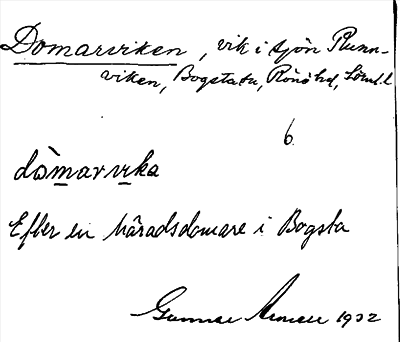 Domarviken, vik i sjön Runn-
viken, Bogsta sn, Rönö hd, Söml. l.
6
dòmarvika
Efter en häradsdomare i Bogsta
Gunnar 1932